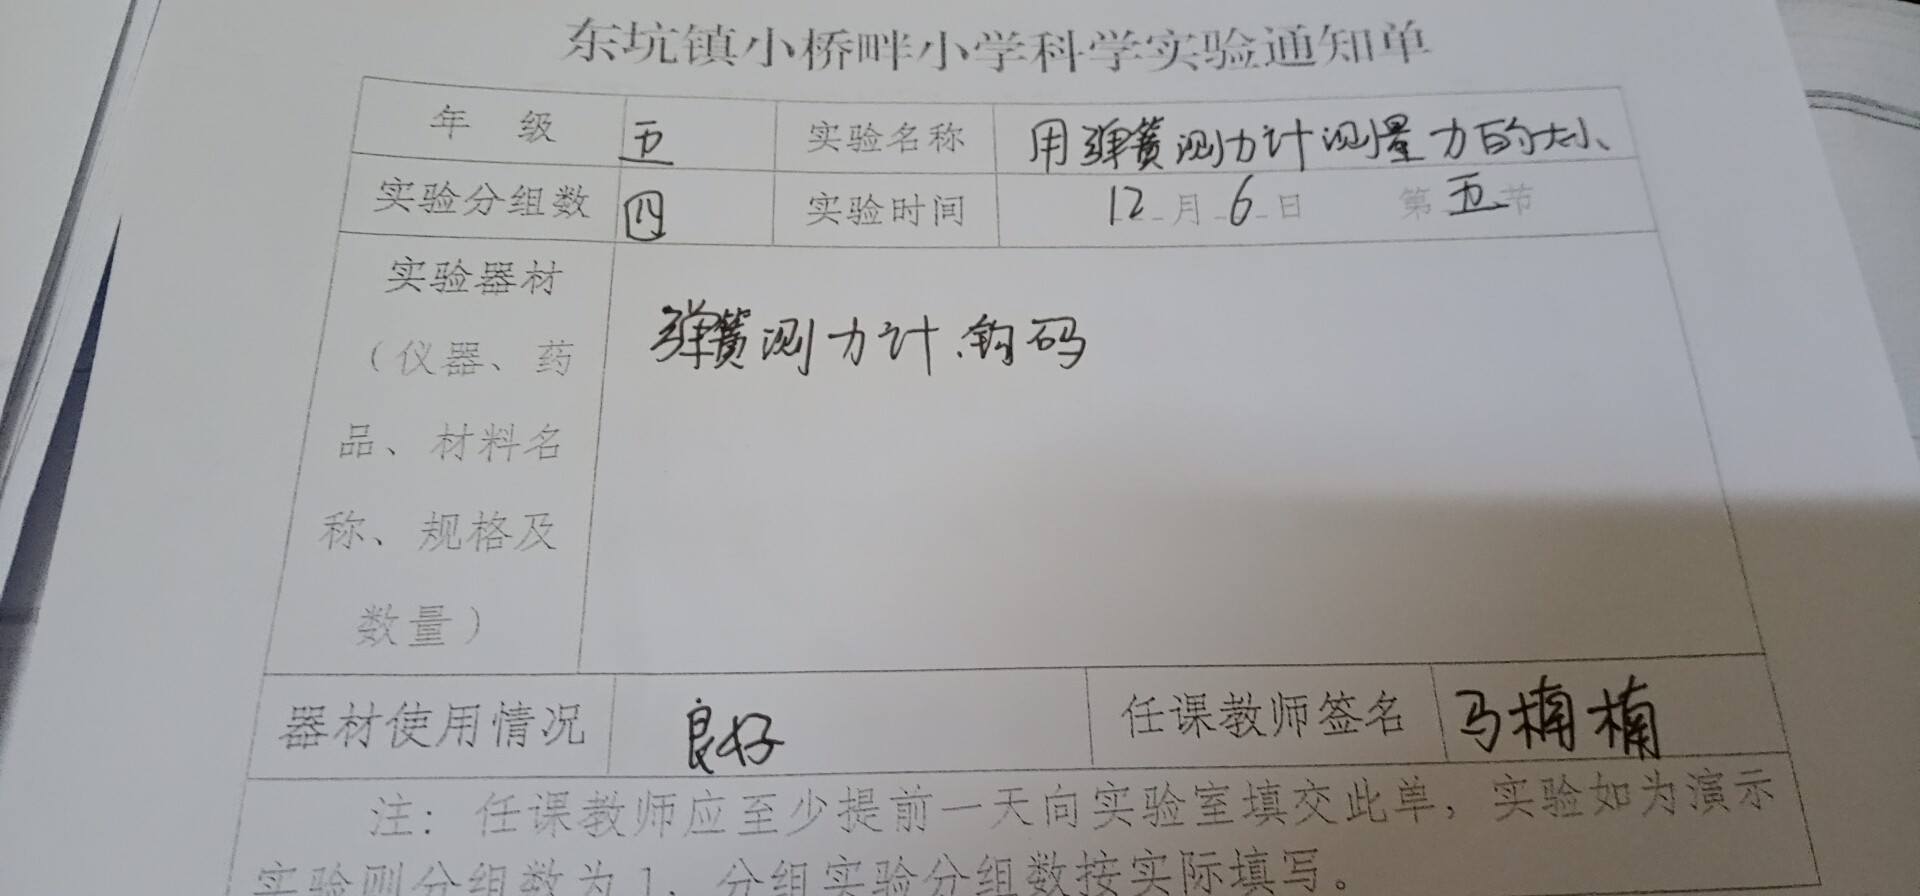 东坑镇小桥畔小学科学实验通知单
年 级 五 实验名称 用弹簧测力计测量力的大小
实验分组数 四 实验时间 12月6日 第五节
实验器材
（仪器、药
品、材料名
称、规格及
数量）
弹簧测力计、钩码
器材使用情况 良好 任课教师签名 马楠楠
注：任课教师应至少提前一天向实验室填交此单，实验如为演示
实验则分组数为1，分组实验分组数按实际填写。